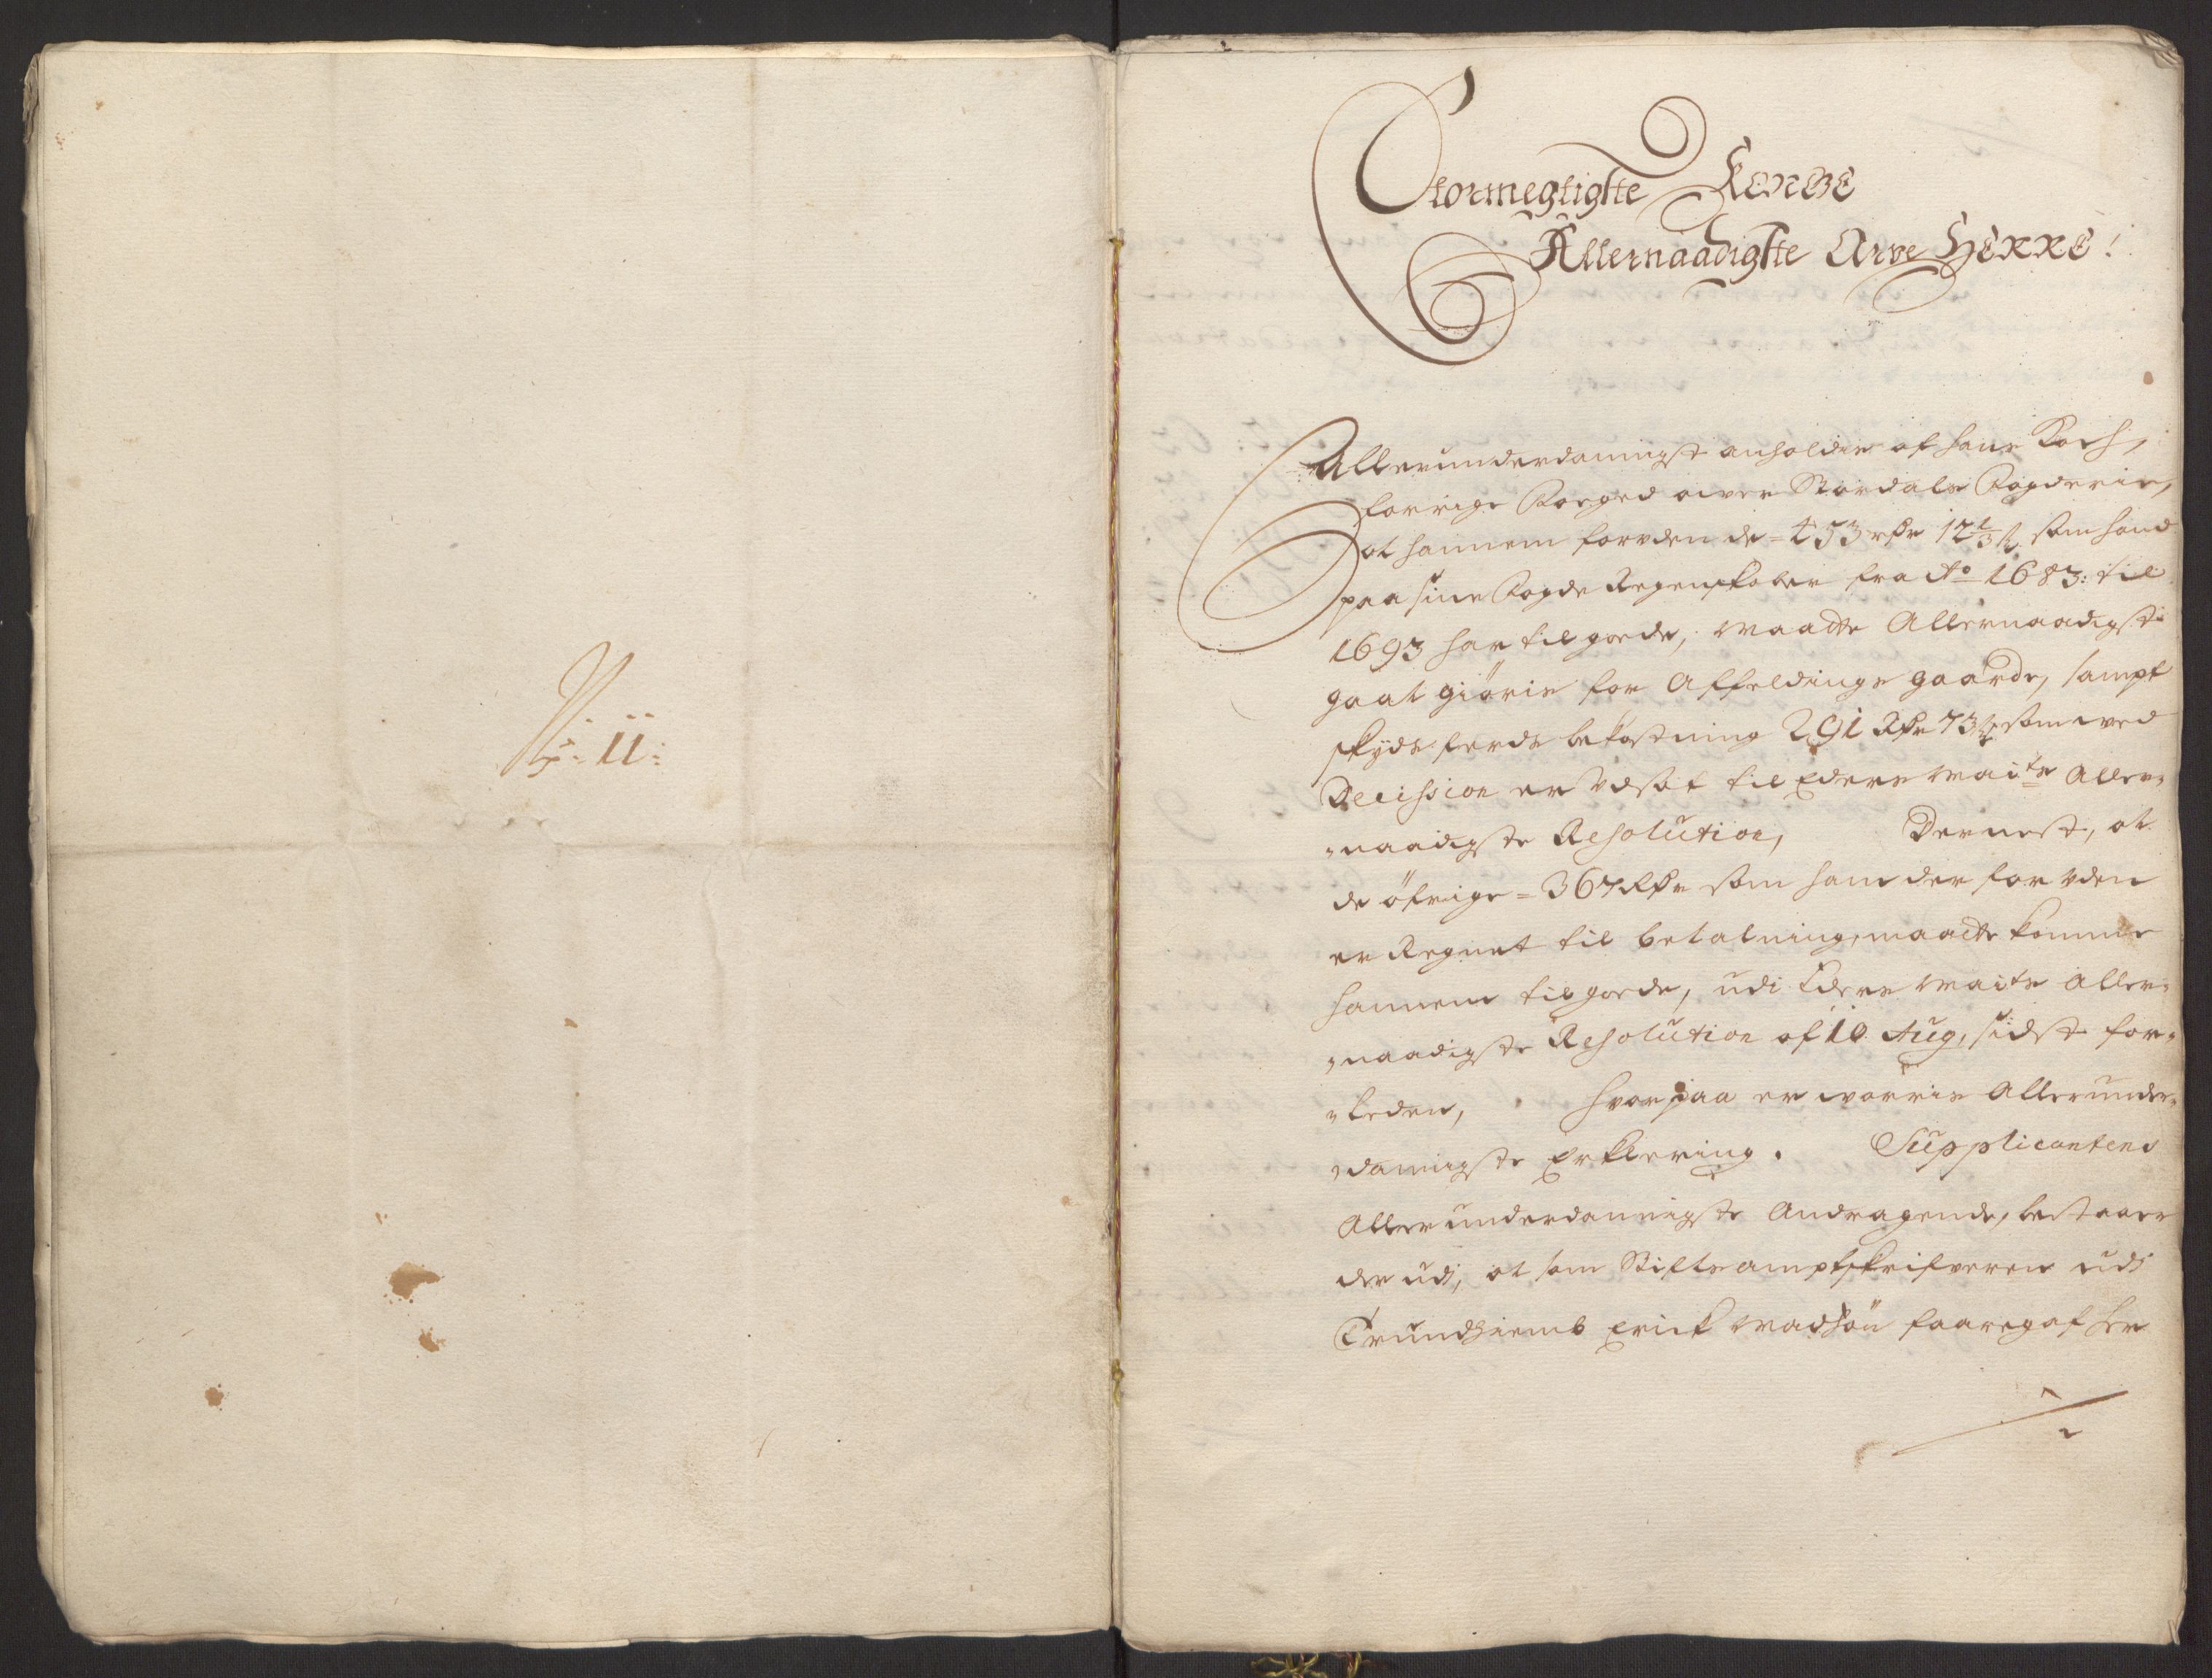 N: 11:
Stormegtigste Konge
Allernaadigste Arve Herre!
Allerunderdannigst anholder af hans Koch,
forrige Foeged over Stördals Fogderie,
at hannem foruden de = 453 rdr 12⅓ s som hand
paa sine Fogde Regenskaber fra Ao 1683: til
1693 har til gode, maatte Allernaadigst
gaat giöris for Affeldings gaarde, sampt
skyds ferds bekostning 291 Rdr 73 s som ved
Decission er udsat til Eders Maits Aller-
naadigste Resolution, Dernest, at
de öfrige = 367 Rdr som ham der foruden
er Regnet til betalning, maatte komme
hannem til gode, udi Eders Maits Aller-
naadigste Resolution af 10 Aug, sidst for-
leden, hvorpaa er worris Allerunder-
dannigste Erklering. Supplicantens
Allerunderdannigste Andragende, bestaaer
der udi, at som Stiftsamptskrifveren udi
Trundhiemb Erick Madsön faaregaf her